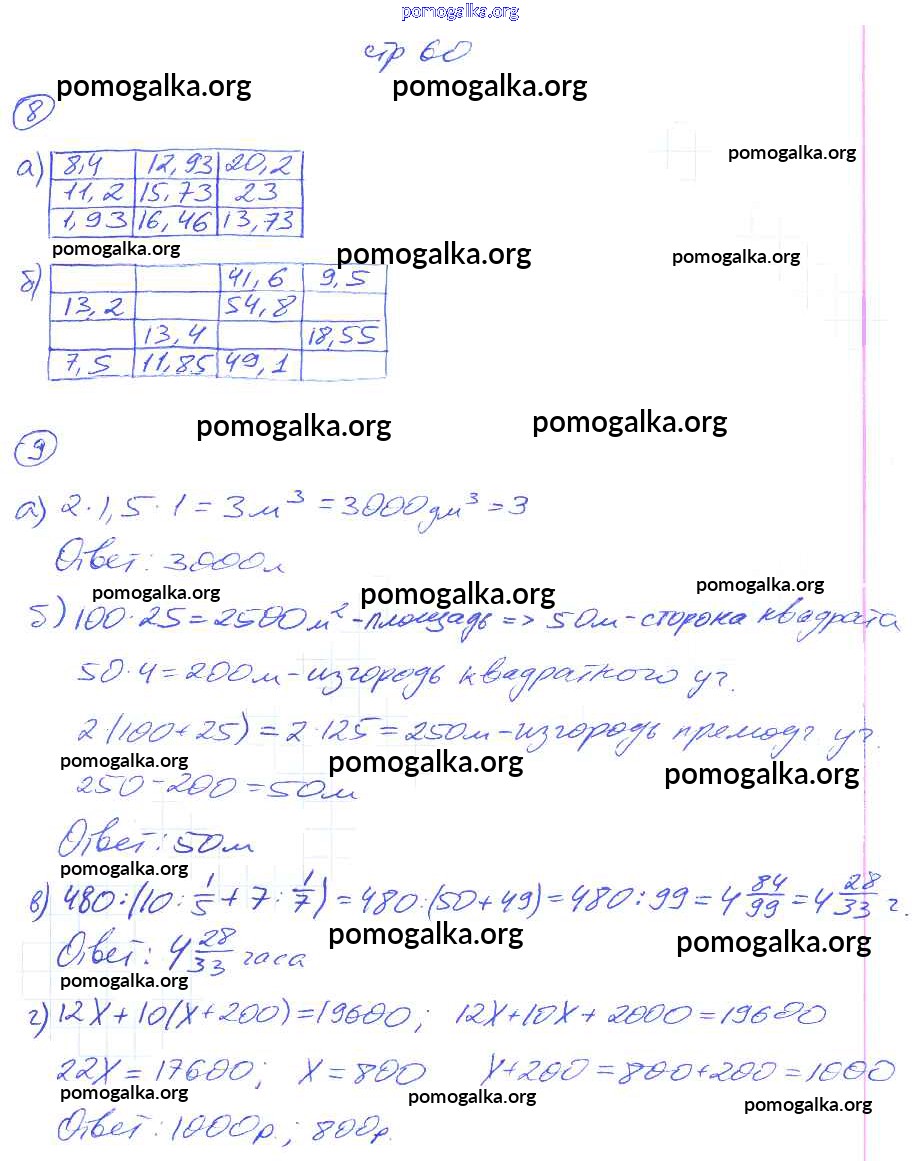 pomogalka.org
стр 60
pomogalka.org pomogalka.org
8
pomogalka.org
а) 8,4 12,93 20,2
11,2 15,73 23
1,93 16,46 13,73
pomogalka.org pomogalka.org pomogalka.org
б) 41,6 9,5
13,2 54,8
13,4 18,55
7,5 11,85 49,1
pomogalka.org pomogalka.org
9
а) 2·1,5·1=3м³=3000дм³=3
Ответ: 3000л
pomogalka.org pomogalka.org pomogalka.org
б) 100·25=2500м²-площадь=>50м-сторона квадрата
50·4=200м-изгородь квадратного уч.
2·(100+25)=2·125=250м-изгородь премоуг уч.
pomogalka.org pomogalka.org pomogalka.org
250-200=50м
Ответ: 50м
pomogalka.org
в) 480:(10:1/5+7:1/7)=480:(50+49)=480:99=4 84/99=4 28/33 ч.
pomogalka.org pomogalka.org
Ответ: 4 28/33 часа
pomogalka.org
г) 12х+10(х+200)=19600; 12х+10х+2000=19600
22х=17600; х=800 х+200=800+200=1000
pomogalka.org pomogalka.org pomogalka.org
Ответ: 1000р.; 800р.